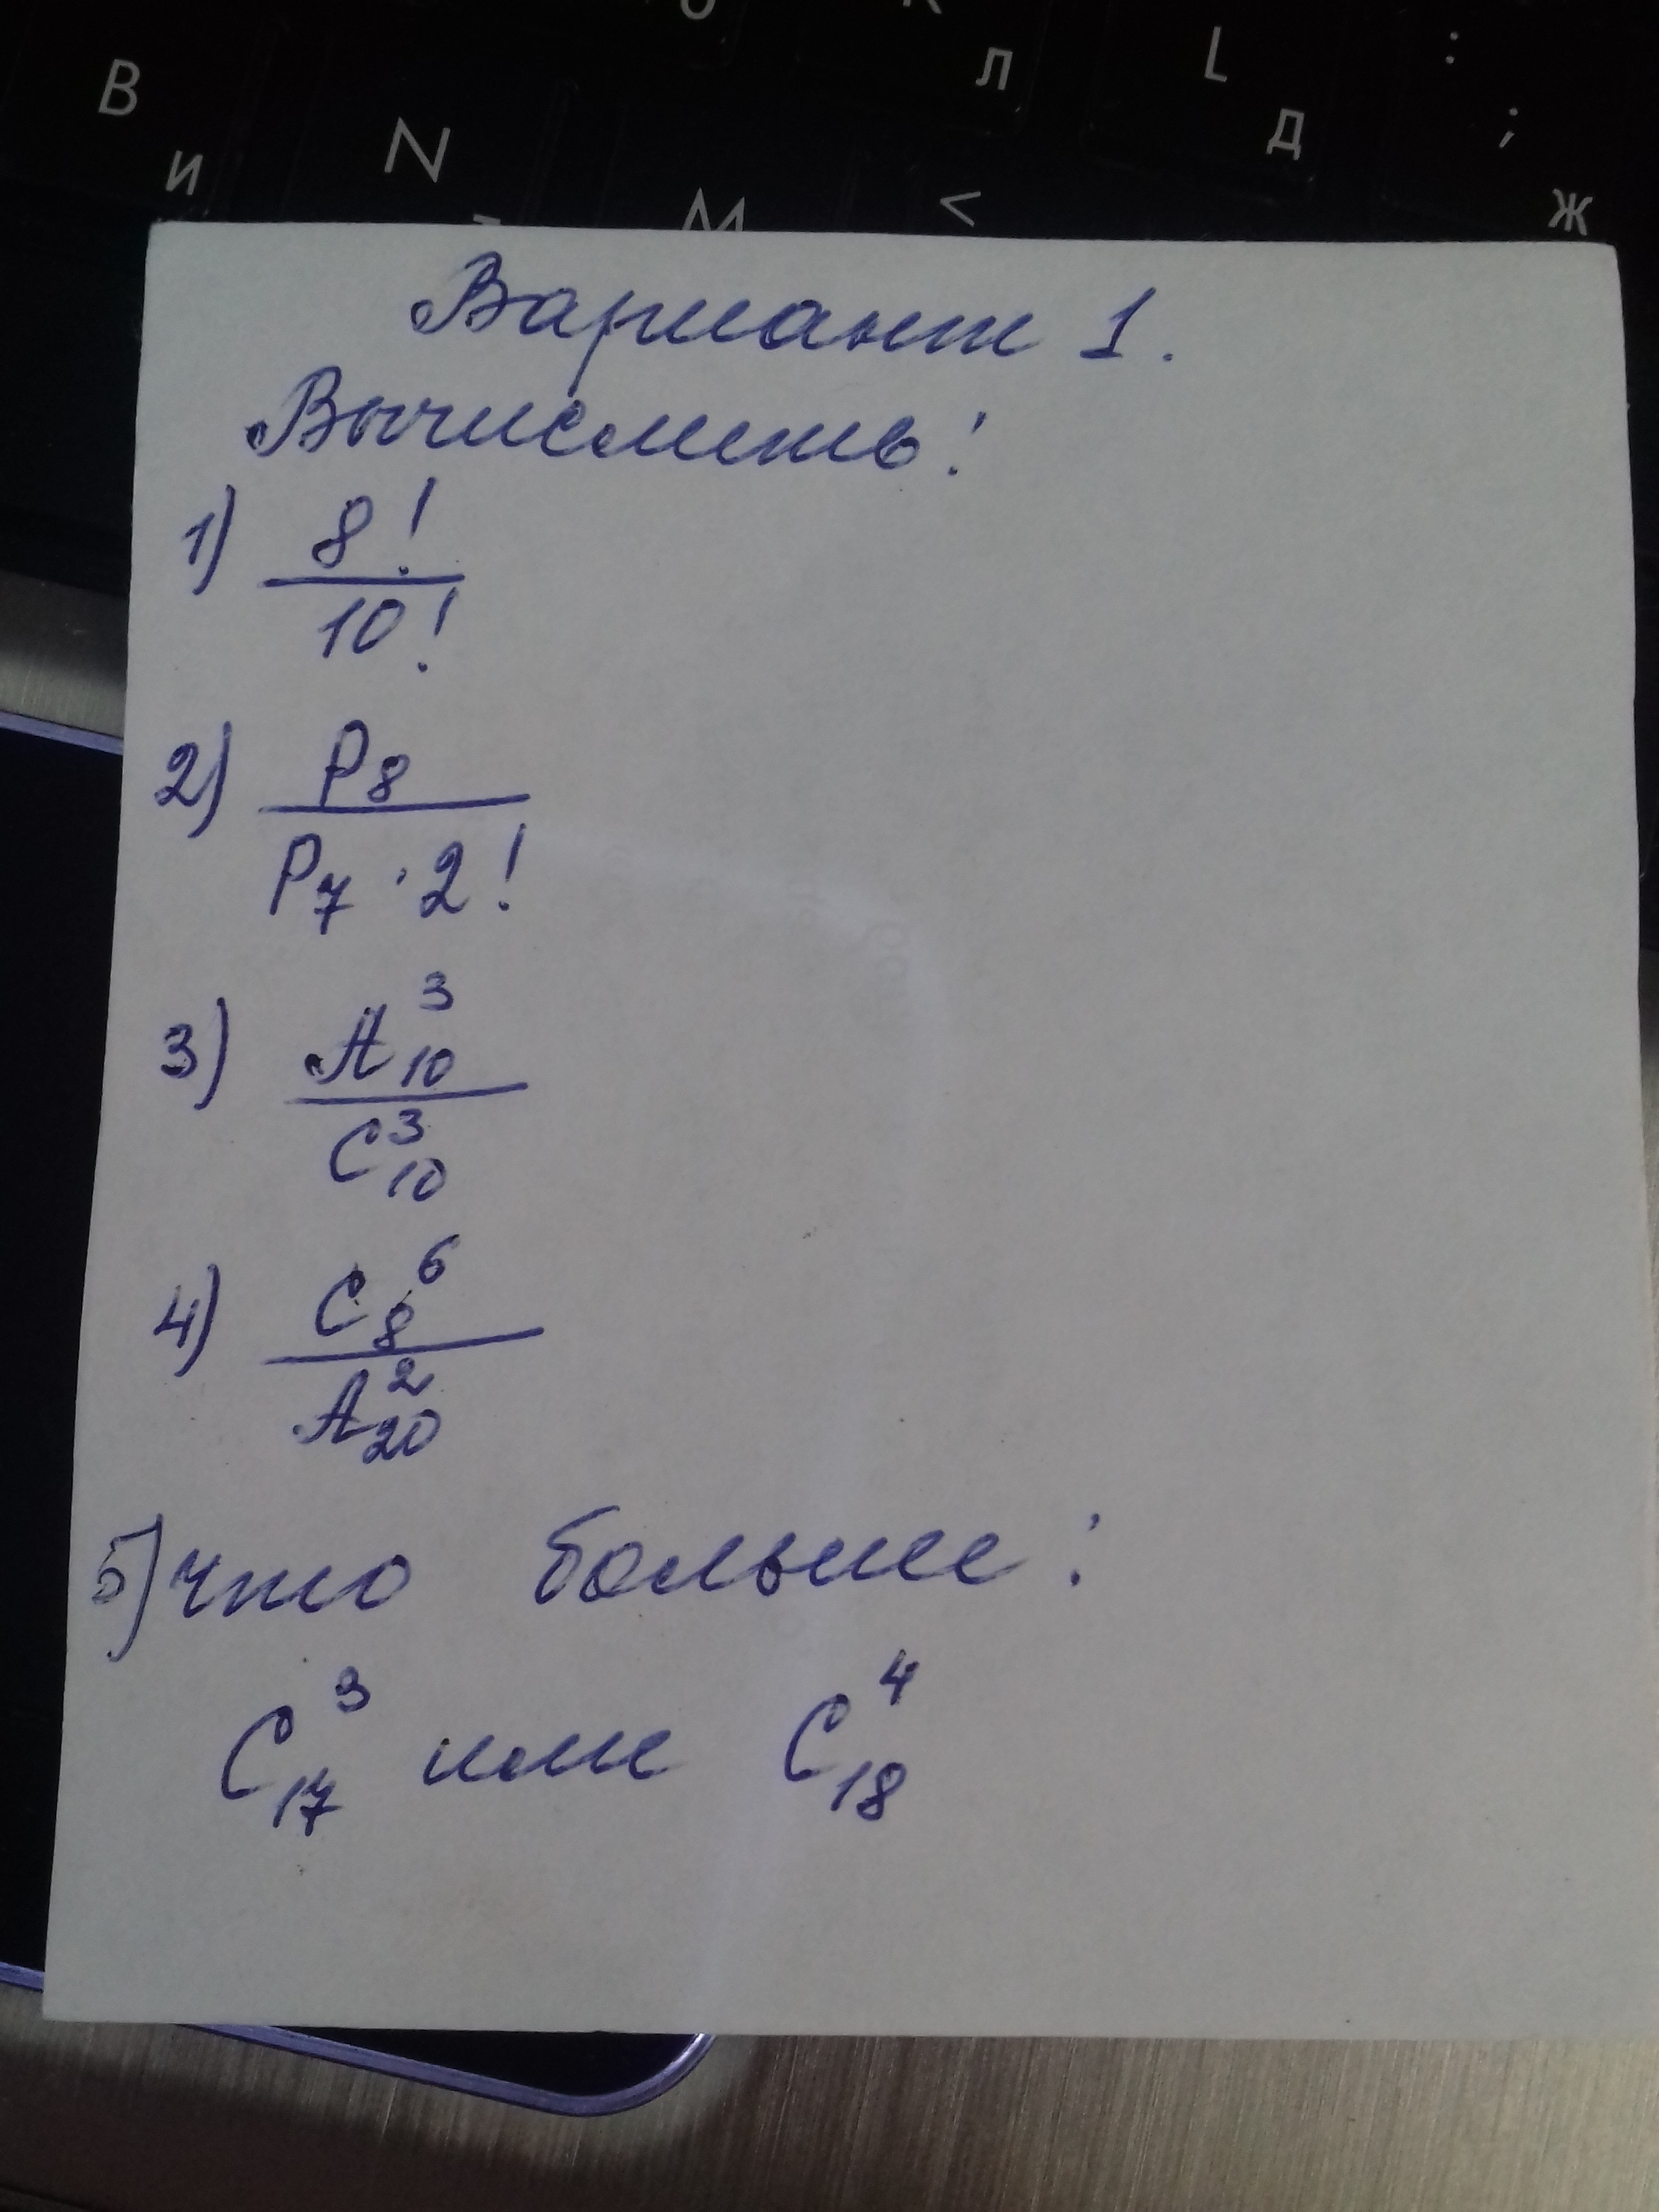 В и N M < Л L Д : ; Ж
Вариант 1.
Вычислить:
1) 8! / 10!
2) P₈ / P₇ · 2!
3) A₁₀³ / C₁₀³
4) C₈⁶ / A₂₀²
5) что больше:
C₁₇³ или C₁₈⁴